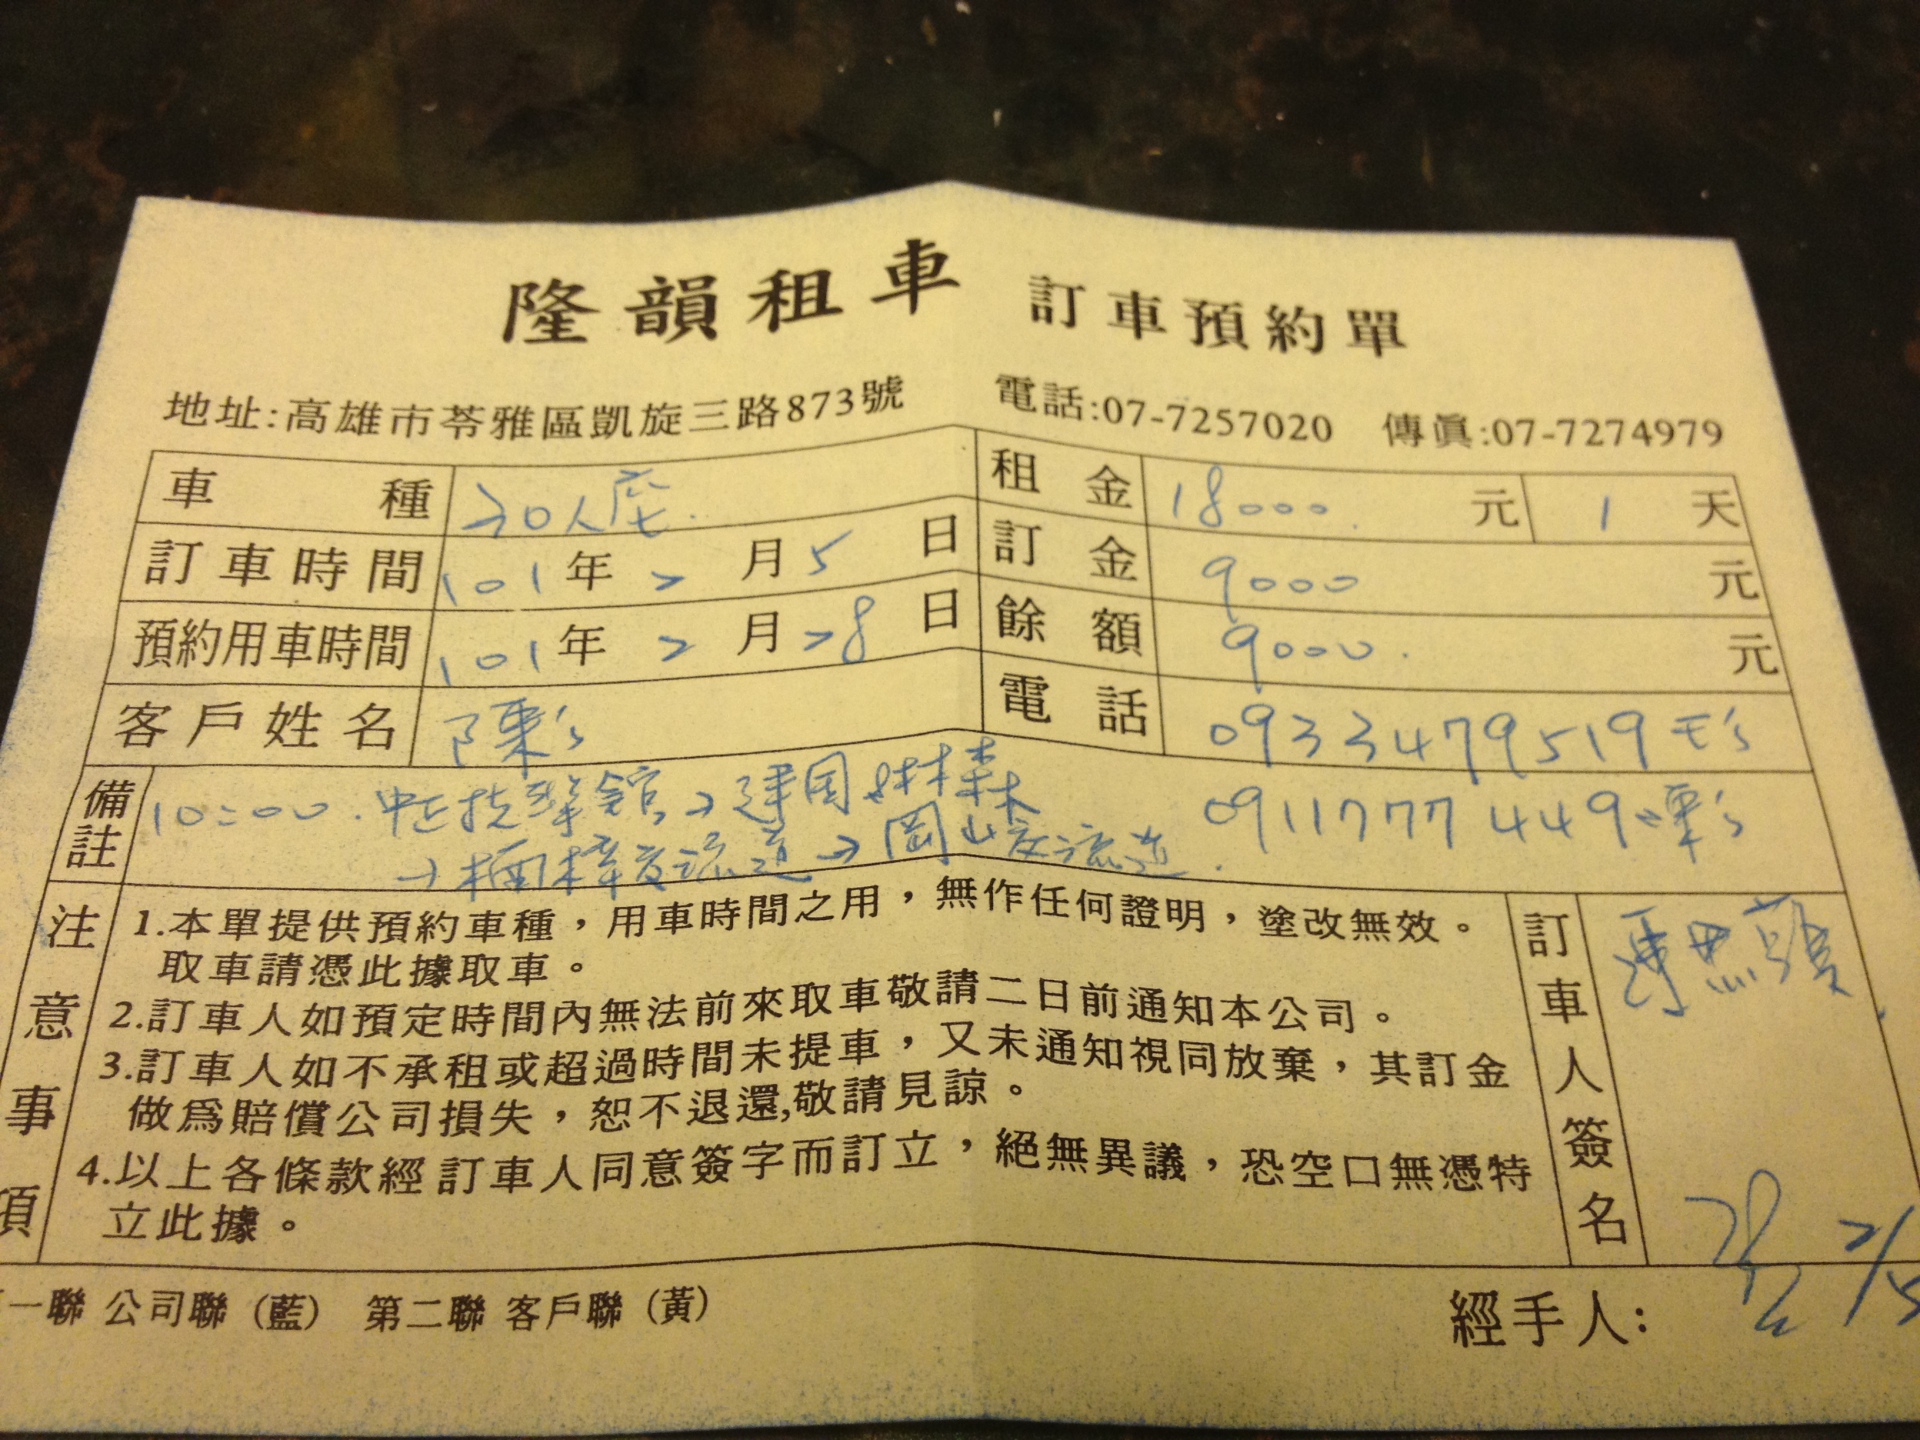 隆韻租車 訂車預約單
地址:高雄市苓雅區凱旋三路873號 電話:07-7257020 傳眞:07-7274979
車種 人座 租金 18000 元 1 天
訂車時間 101年 2 月 5 日 訂金 9000 元
預約用車時間 101年 2 月 28 日 餘額 9000 元
客戶姓名 陳 電話 0933479519
備註 10:00 中正技擊館→建国 林森 0911777449
→楠梓交流道→岡山交流道
注意事項
1.本單提供預約車種，用車時間之用，無作任何證明，塗改無效。
取車請憑此據取車。
2.訂車人如預定時間內無法前來取車敬請二日前通知本公司。
3.訂車人如不承租或超過時間未提車，又未通知視同放棄，其訂金
做爲賠償公司損失，恕不退還,敬請見諒。
4.以上各條款經訂車人同意簽字而訂立，絕無異議，恐空口無憑特
立此據。
訂車人簽名
一聯 公司聯（藍） 第二聯 客戶聯（黃）
經手人: 2/5